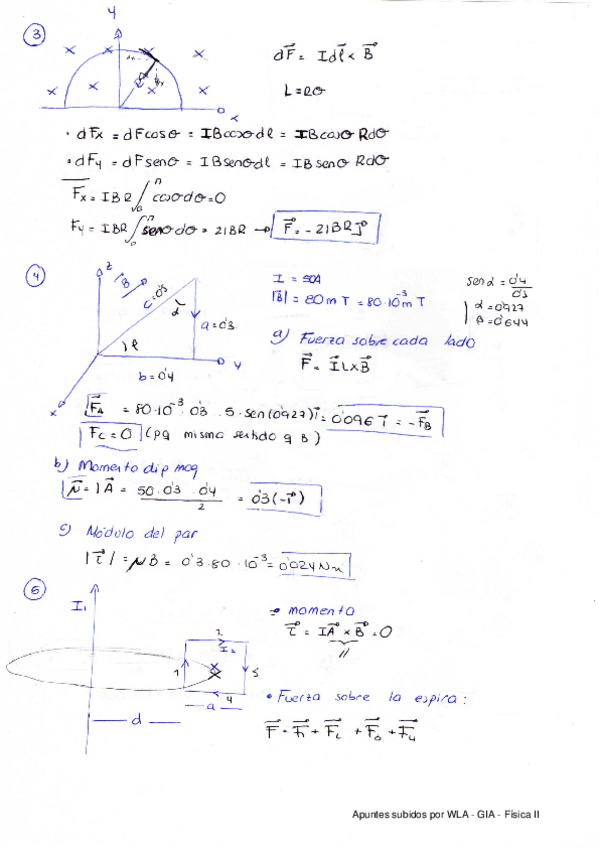 y
③
dF⃗ = I dl⃗ × B⃗
L = RΘ
x
· dFx = dF cosΘ = IB cosΘ dl = IB cosΘ R dΘ
· dFy = dF senΘ = IB senΘ dl = IB senΘ R dΘ
Fx = IBR ∫₀^π cosΘ dΘ = 0
Fy = IBR ∫₀^π senΘ dΘ = 2IBR → F⃗ = -2IBR j⃗
④
z
B⃗
c = 0'5
α
a = 0'3
y
b = 0'4
x
I = 50A
|B⃗| = 80 mT = 80·10⁻³ mT
sen α = 0'4/0'5
α = 0'927
β = 0'644
a) Fuerza sobre cada lado
F⃗ = I⃗L × B⃗
F⃗A = 80·10⁻³ · 0'3 · 5 · sen(0'927) i⃗ = 0'096 i⃗ = -F⃗B
Fc = 0 (pq mismo sentido q B)
b) Momento dip mag
μ⃗ = I A⃗ = 50 · 0'3 · 0'4 / 2 = 0'3 (-i⃗)
c) Módulo del par
|τ⃗| = μB = 0'3 · 80 · 10⁻³ = 0'024 Nm
I₁
momento
τ⃗ = IA⃗ × B⃗ = 0
//
2
I₂
1
4
a
d
• Fuerza sobre la espira:
Apuntes subidos por WLA - GIA - Física II